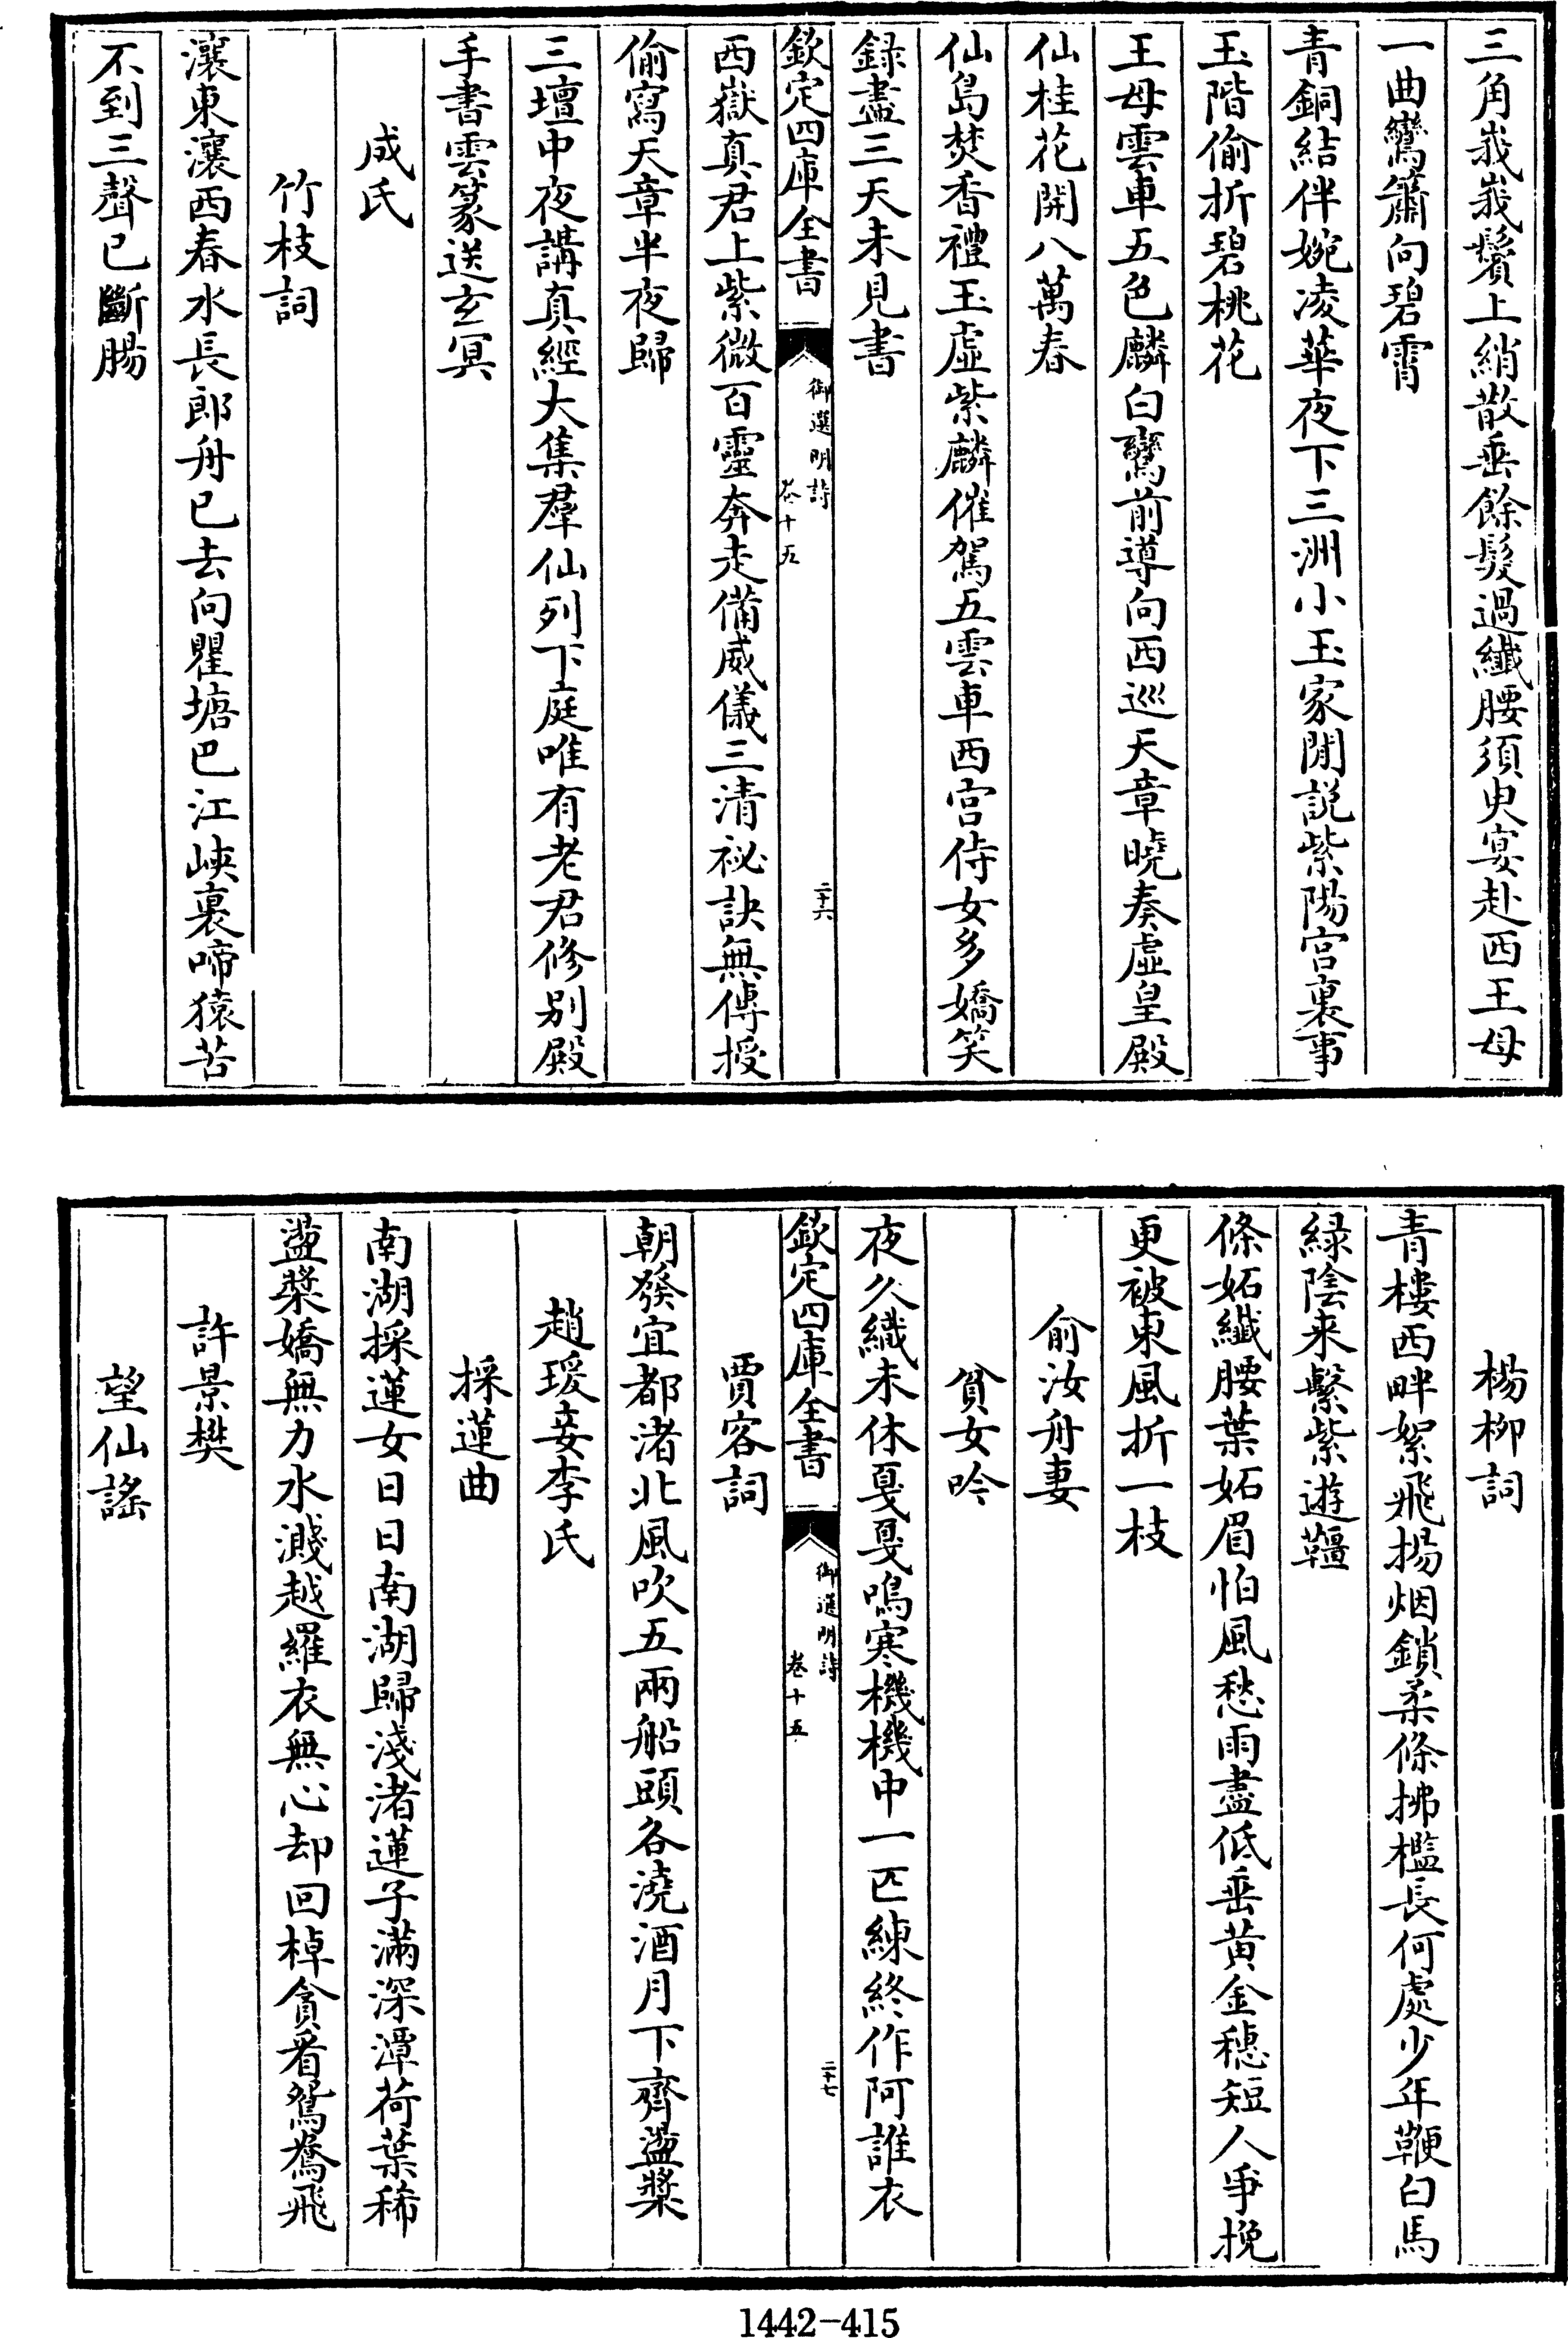 三角峩峩鬢上綃散垂餘髮過纖腰須臾宴赴西王母
一曲鸞簫向碧霄
青銅結伴婉凌華夜下三洲小玉家閒説紫陽宫裏事
玉階偷折碧桃花
王母雲車五色麟白鸞前導向西巡天章曉奏虛皇殿
仙桂花開八萬春
仙島焚香禮玉虛紫麟催駕五雲車西宫侍女多嬌笑
録盡三天未見書
欽定四庫全書
御選明詩
卷十五
二十六
西嶽真君上紫微百靈奔走備威儀三清祕訣無傳授
偷寫天章半夜歸
三壇中夜講真經大集羣仙列下庭唯有老君修别殿
手書雲篆送玄冥
成氏
竹枝詞
瀼東瀼西春水長郎舟已去向瞿塘巴江峽裏啼猿苦
不到三聲已斷腸
楊柳詞
青樓西畔絮飛揚烟鎖柔條拂檻長何處少年鞭白馬
緑陰来繫紫遊韁
條妬纖腰葉妬眉怕風愁雨盡低垂黄金穗短人爭挽
更被東風折一枝
俞汝舟妻
貧女吟
夜久織未休戛戛鳴寒機機中一匹練終作阿誰衣
欽定四庫全書
御選明詩
卷十五
二十七
賈客詞
朝發宜都渚北風吹五兩船頭各澆酒月下齊盪槳
趙瑗妾李氏
採蓮曲
南湖採蓮女日日南湖歸淺渚蓮子滿深潭荷葉稀
盪槳嬌無力水濺越羅衣無心却回棹貪看鴛鴦飛
許景樊
望仙謠
1442-415